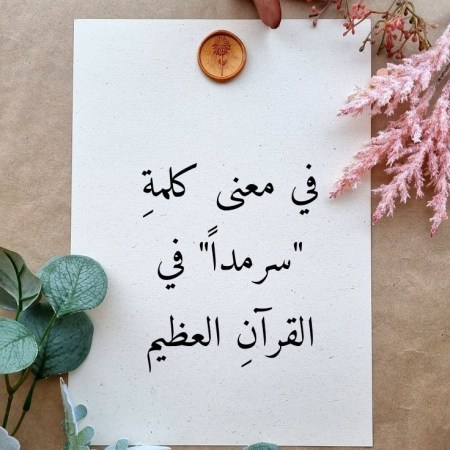 في معنى كلمةِ
"سرمداً" في
القرآنِ العظيم